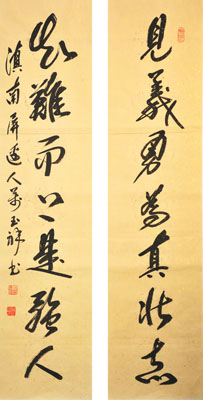 見義勇為真壯志
知難而上是強人
滇南屏邊人萬玉祥書